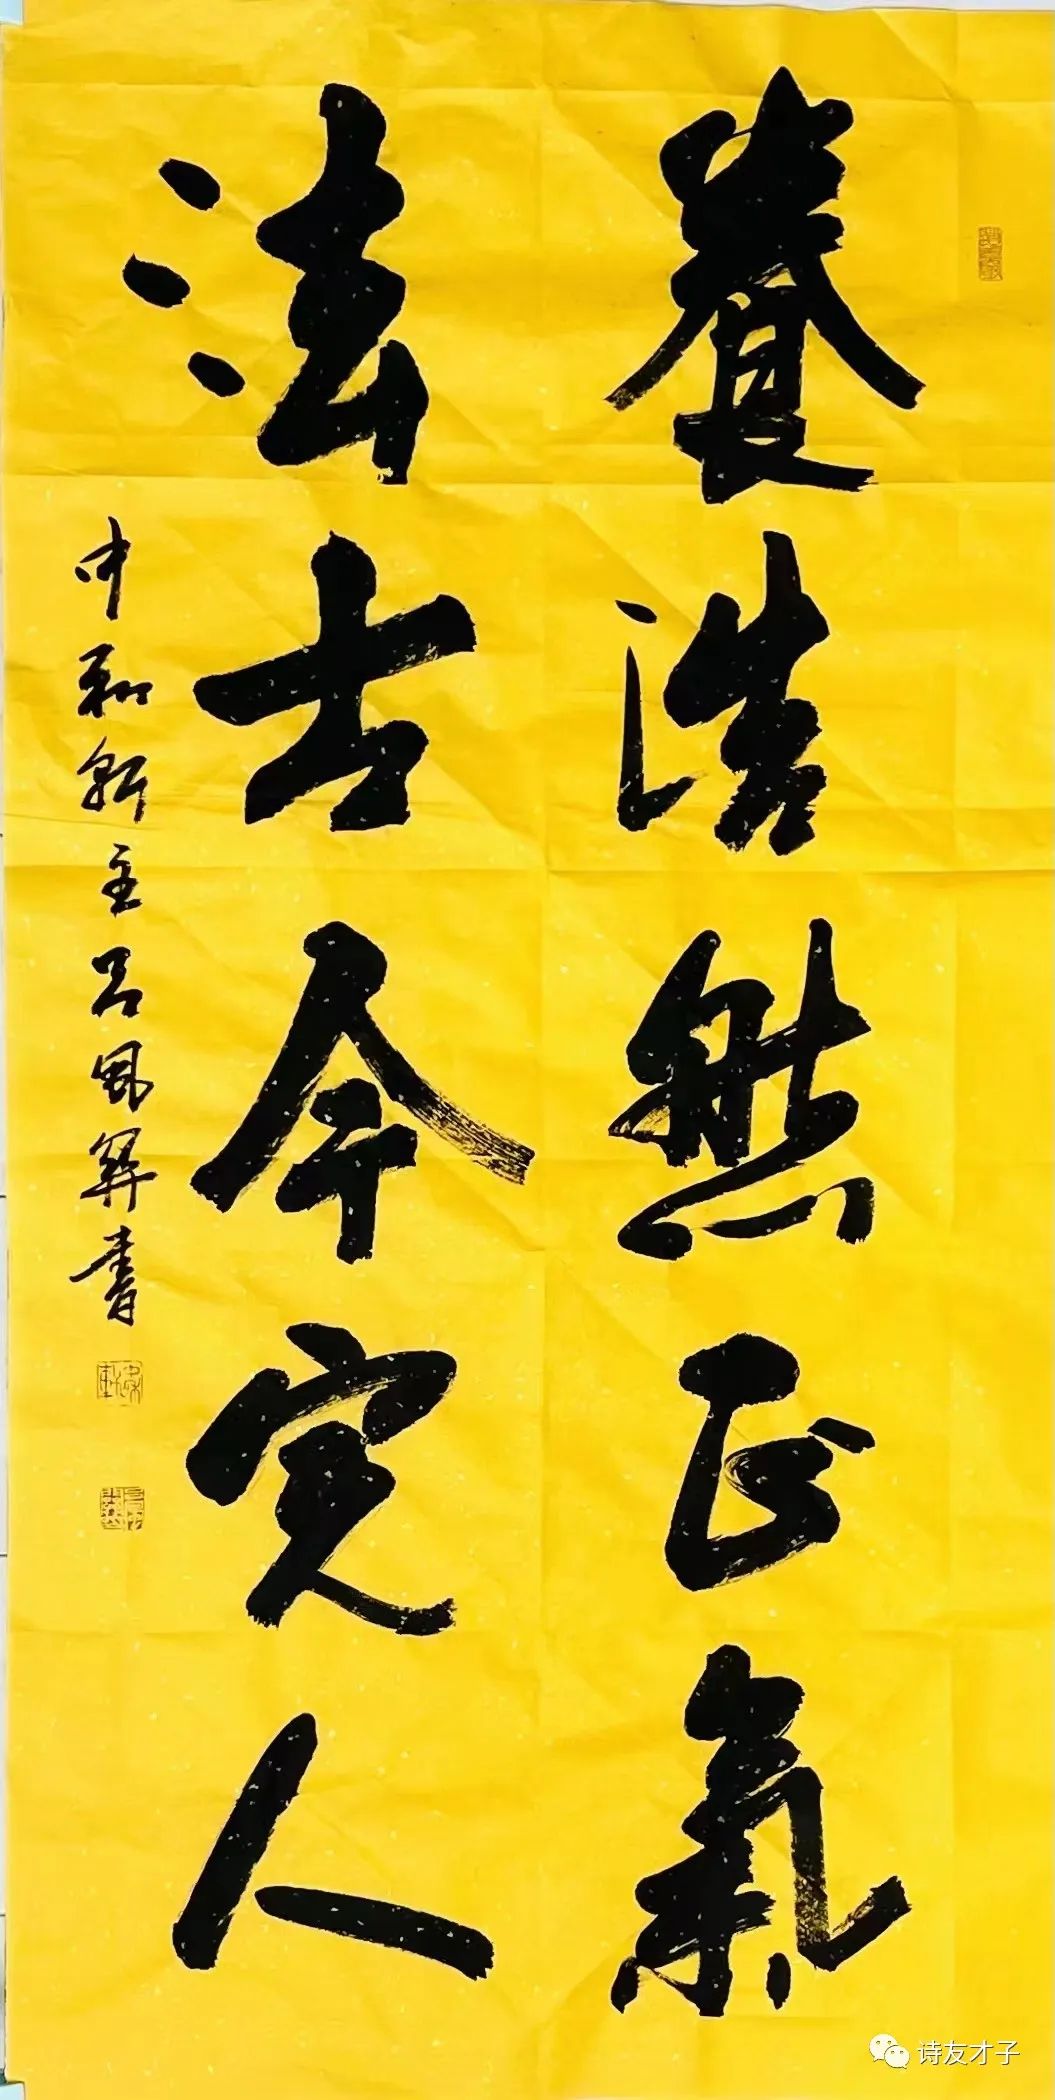 養浩然正氣
法古今完人
中和軒主呂風羣書
诗友才子